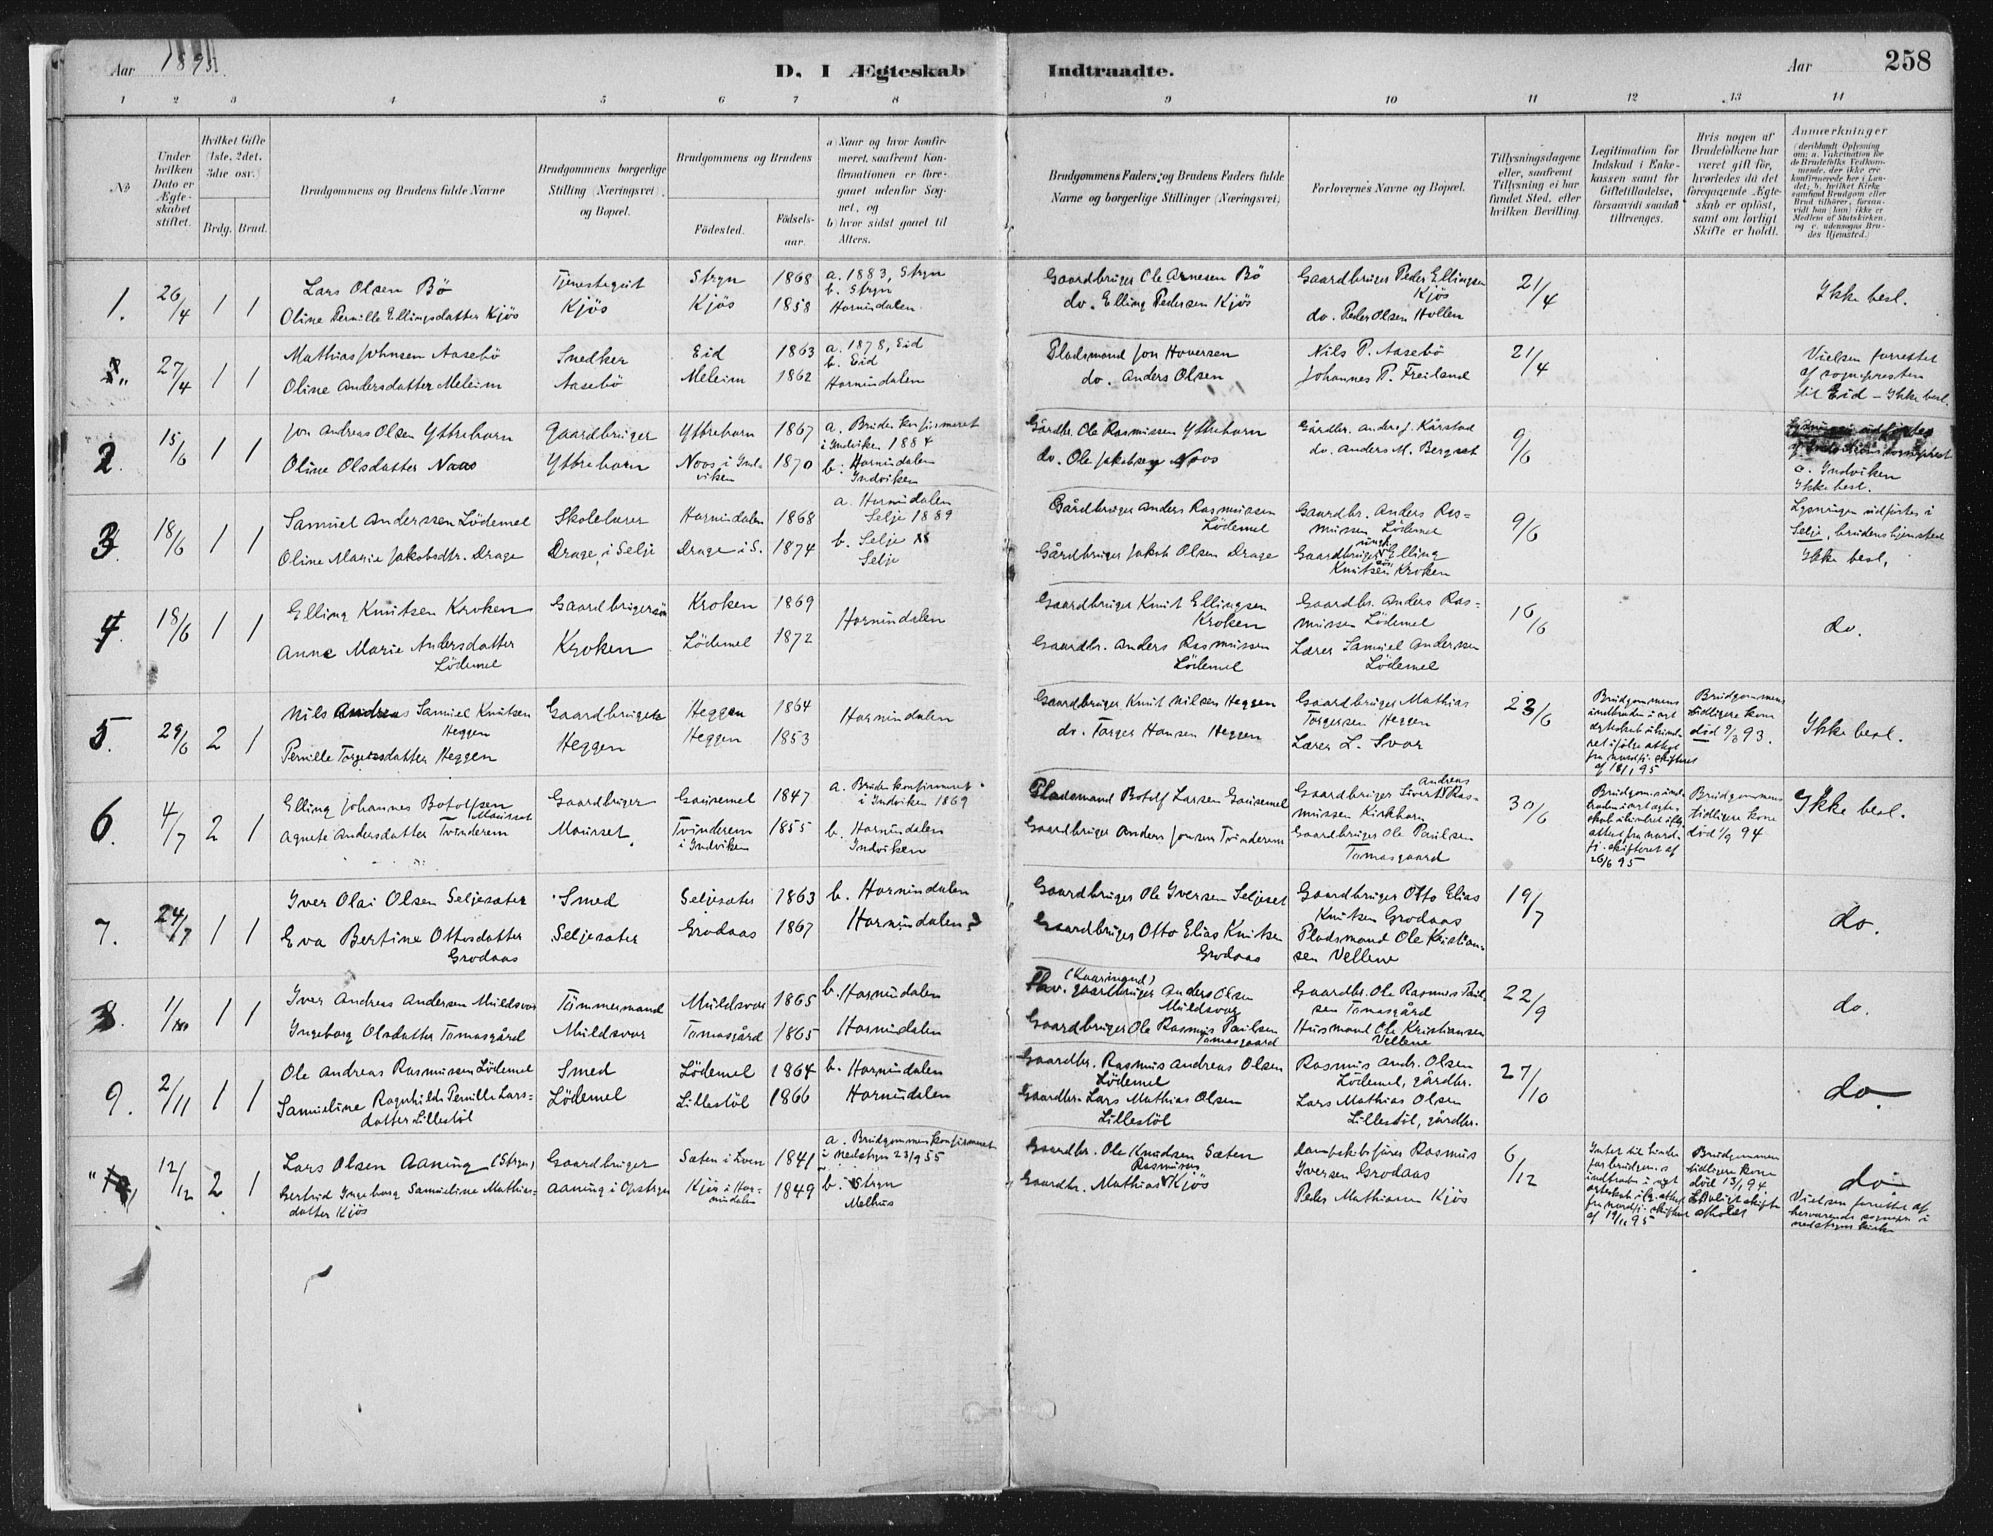 Aar 1895.
D. I Ægteskab Indtraadte.
Aar 258
1 2 3 4 5 6 7 8 9 10 11 12 13 14
No
Under hvilken Dato er Ægteskabet stiftet.
Hvilket Gifte (1ste, 2det, 3die osv.)
Brdg. Brud.
Brudgommens og Brudens fulde Navne
Brudgommens borgerlige Stilling (Næringsvei) og Bopæl.
Brudgommens og Brudens
Fødested. Fødselsaar.
a) Naar og hvor konfirmeret, saafremt Konfirmationen er foregaaet udenfor Sognet, og
b) hvor sidst gaaet til Alters.
Brudgommens Faders og Brudens Faders fulde Navne og borgerlige Stillinger (Næringsvei)
Forlovernes Navne og Bopæl.
Tillysningsdagene eller, saafremt Tillysning ei har fundet Sted, efter hvilken Bevilling.
Legitimation for Indskud i Enkekassen samt for Giftetilladelse, forsaavidt saadan tiltrænges.
Hvis nogen af Brudefolkene har været gift før, hvorledes da det foregaaende Ægteskab er opløst, samt om lovligt Skifte er holdt.
Anmærkninger (deriblandt Oplysning om: a. Vakcination for de Brudefolks Vedkommende, der ikke ere konfirmerede her i Landet; b. hvilket Kirkesamfund Brudgom eller Brud tilhører, forsaavidt han (hun) ikke er Medlem af Statskirken, og c. udensogns Brudes Hjemsted.)
1. 26/4 1 1
Lars Olsen Bö
Oline Pernille Ellingsdatter Kjös
Tjenestegut
Kjös
Stryn 1868
Kjös 1858
a. 1883, Stryn
b. Stryn
Hornindalen.
Gaardbruger Ole Arnesen Bö
do. Elling Pedersen Kjös
Gaardbruger Peder Ellingsen
Kjös
do. Peder Olsen Hollen
21/4
Ikke besl.
27/4 1 1
Mathias Johnsen Aasebö
Oline Andersdatter Meleim
Snedker
Aasebö
Eid 1863
Meleim 1862
a. 1878, Eid
b. Eid
Hornindalen
Pladsmand Jon Hoversen
do. Anders Olsen
Nils P. Aasebö
Johannes P. Freiland
21/4
Vielsen forrettet
af sognepresten
til Eid – Ikke besl.
2. 15/6 1 1
Jon Andreas Olsen Yttrehorn
Oline Olsdatter Noos
Gaardbruger
Yttrehorn
Yttrehorn 1867
Noos i Ind-
viken 1870
a. Bruden konfirmeret
i Indviken 1884
b. Hornindalen
Indviken
Gårdbr. Ole Rasmussen Yttrehorn
do. Ole Jakobsen Noos
Gårdbr. Anders J. Kårstad
do. Anders M. Bergset
9/6
a. Indviken
Ikke besl.
3. 18/6 1 1
Samuel Anderssen Lödemel
Oline Marie Jakobsdtr. Drage
Skolelærer
Drage i Selje
Hornindalen 1868
Drage i S. 1874
a. Hornindalen
Selje 1889
b. Selje
Selje
Gårdbruger Anders Rasmussen
Lödemel
Gårdbruger Jakob Olsen Drage
Gaardbr. Anders Ras-
mussen Lödemel
Gaardbruger Elling
Knutsen Kroken
9/6
Lysningen udfortes i
Selje, brudens hjemsted
Ikke besl.
4. 18/6 1 1
Elling Knutsen Kroken
Anne Marie Andersdatter
Lödemel
Gaardbrugersön
Kroken
Kroken 1869
Lödemel 1872
Hornindalen
Gaardbruger Knut Ellingsen
Kroken
Gaardbr. Anders Rasmussen
Lödemel
Gaardbr. Anders Ras-
mussen Lödemel
Lærer Samuel Andersen
Lödemel
16/6
do.
5. 29/6 2 1
Nils Andreas Samuel Knutsen
Heggen
Pernille Torgersdatter Heggen
Gaardbruger
Heggen
Heggen 1864
Heggen 1853
Hornindalen
Gaardbruger Knut Nilsen Heggen
do. Torger Hansen Heggen
Gaardbruger Mathias
Torgersen Heggen
Lærer L. Svor
23/6
Brudgommens
Brudgommens
tidligere kone
död 93.
Ikke besl.
6. 4/7 2 1
Elling Johannes Botolfsen
Maurset
Agnete Andersdatter Tvinderem
Gaardbruger
Maurset.
Gausemel 1847
Tvinderem
i Indviken 1855
a. Bruden konfirmeret
i Indviken 1869
b. Hornindalen
Indviken
Pladsmand Botolf Larsen Gausemel
Gaardbruger Anders Jonsen Tvinderem
Andreas
Gaardbruger Sivert Ras-
mussen Kirkhorn
Gaardbruger Ole Paulsen
Tomasgaard
30/6
26/6 95
Brudgommens
tidligere kone
död 1/9 94
Ikke besl.
7. 24/7 1 1
Iver Olai Olsen Seljesæter
Eva Bertine Ottosdatter
Grodaas
Smed
Seljesæter
Seljesæter 1863
Grodaas 1867
b. Hornindalen
Hornindalen
Gaardbruger Ole Iversen Seljeset
Gaardbruger Otto Elias Knutsen
Grodaas
Gaardbruger Otto Elias
Knutsen Grodaas
Pladsmand Ole Kristian-
sen Vellene
19/7
do.
8. 1/10 1 1
Iver Andreas Andersen Muldsvor
Ingeborg Olsdatter Tomasgård
Tömmermand
Muldsvor
Muldsvor 1865
Tomasgård 1865
b. Hornindalen
Hornindalen
(Kaarmand)
Fhv. gaardbruger Anders Olsen
Muldsvor
Gaardbruger Ole Rasmus Paulsen
Tomasgaard
Gaardbr. Ole Rasmus Paul-
sen Tomasgård
Husmand Ole Kristiansen
Vellene
22/9
do.
9. 2/11 1 1
Ole Andreas Rasmussen Lödemel
Samueline Ragnhilde Pernille Lars-
datter Lillestöl
Smed
Lödemel
Lödemel 1864
Lillestöl 1866
b. Hornindalen
Hornindalen
Gaardbr. Rasmus Andreas Olsen
Lödemel
Gaardbr. Lars Mathias Olsen
Lillestöl
Rasmus Andr. Olsen
Lödemel, gårdbr.
Lars Mathias Olsen
Lillestöl, gårdbr.
27/10
do.
10. 12/12 2 1
Lars Olsen Aaning (Stryn)
Gertrud Ingeborg Samueline Mathias-
datter Kjös
Gaardbruger
Aaning i Opstryn
Sæten i Loen 1841
Kjös i Hor-
nindalen 1849
a. Brudgommen konfirmeret
i nedstryn 23/9 55
b. Stryn
Melhus
Gaardbr. Ole Knudsen Sæten
Rasmussen
Gaardbr. Mathias Kjös
Dampskibsförer Rasmus
Iversen Grodaas
Peder Mathiassen Kjös
6/12
Intet til hinder
for brudgom.s
indtræden i nyt
Brudgommens
tidligere kone
död 13/1 94
Lovligt skifte
afholdt
do.
Vielsen forrettet af
herværende sognepr. i
nedstryns kirke